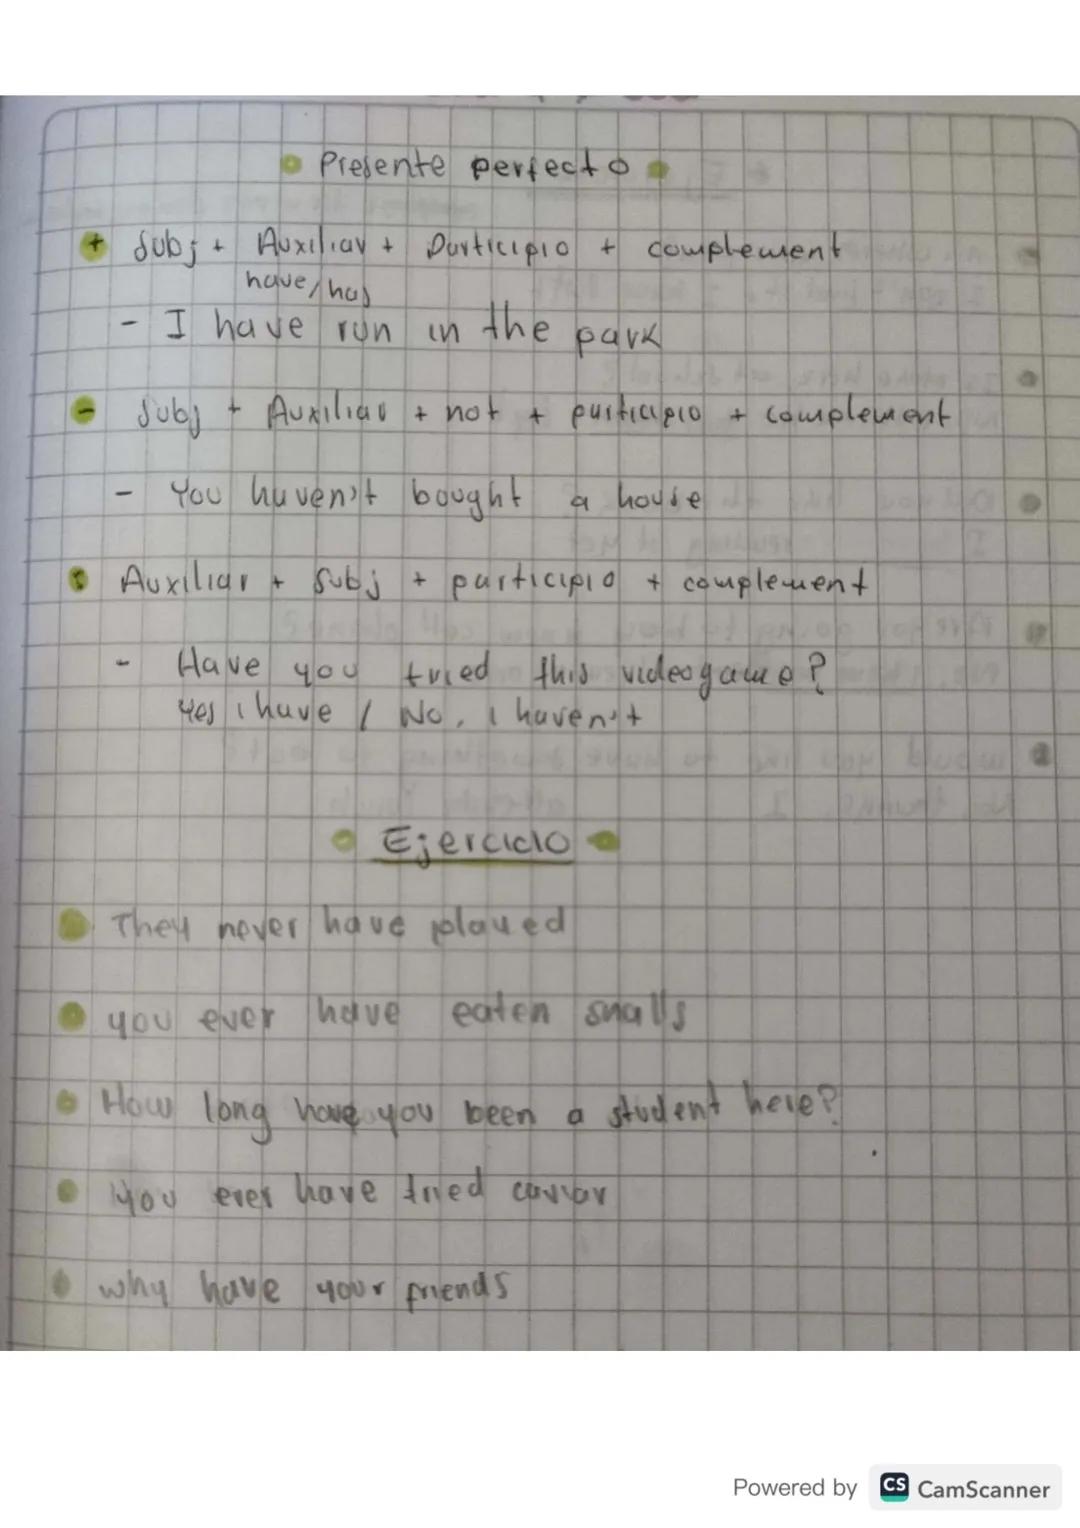 Presente perfecto
+ Subj + Auxiliar + Participio + complement
have/has
- I have run in the park
- Subj + Auxiliar + not + participio + complement
- You haven't bought a house
Auxiliar + Subj + participio + complement
- Have you tried this videogame?
Yes i have / No, i haven't
Ejercicio
They never have played
you ever have eaten snalls
How long have you been a student here?
You ever have tried caviar
why have your friends
Powered by CS CamScanner